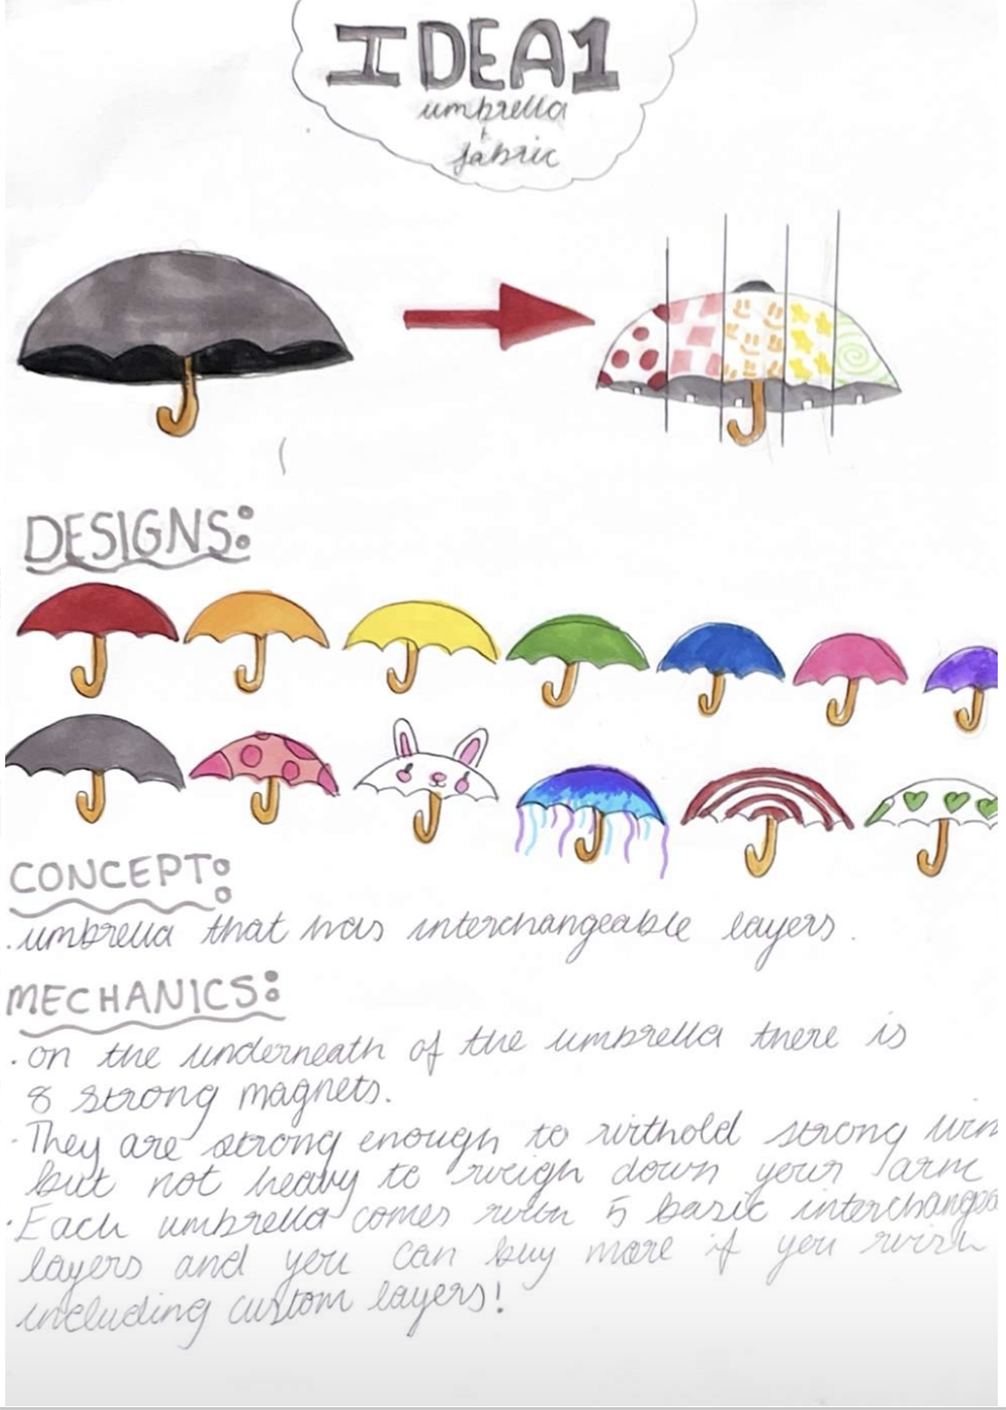 IDEA1
umbrella
+
fabric
DESIGNS:
CONCEPT:
. umbrella that has interchangeable layers.
MECHANICS:
. on the underneath of the umbrella there is
8 strong magnets.
. They are strong enough to withold strong
but not heavy to weigh down your arm
. Each umbrella comes with 5 basic
layers and you can buy more if you wish
including custom layers!